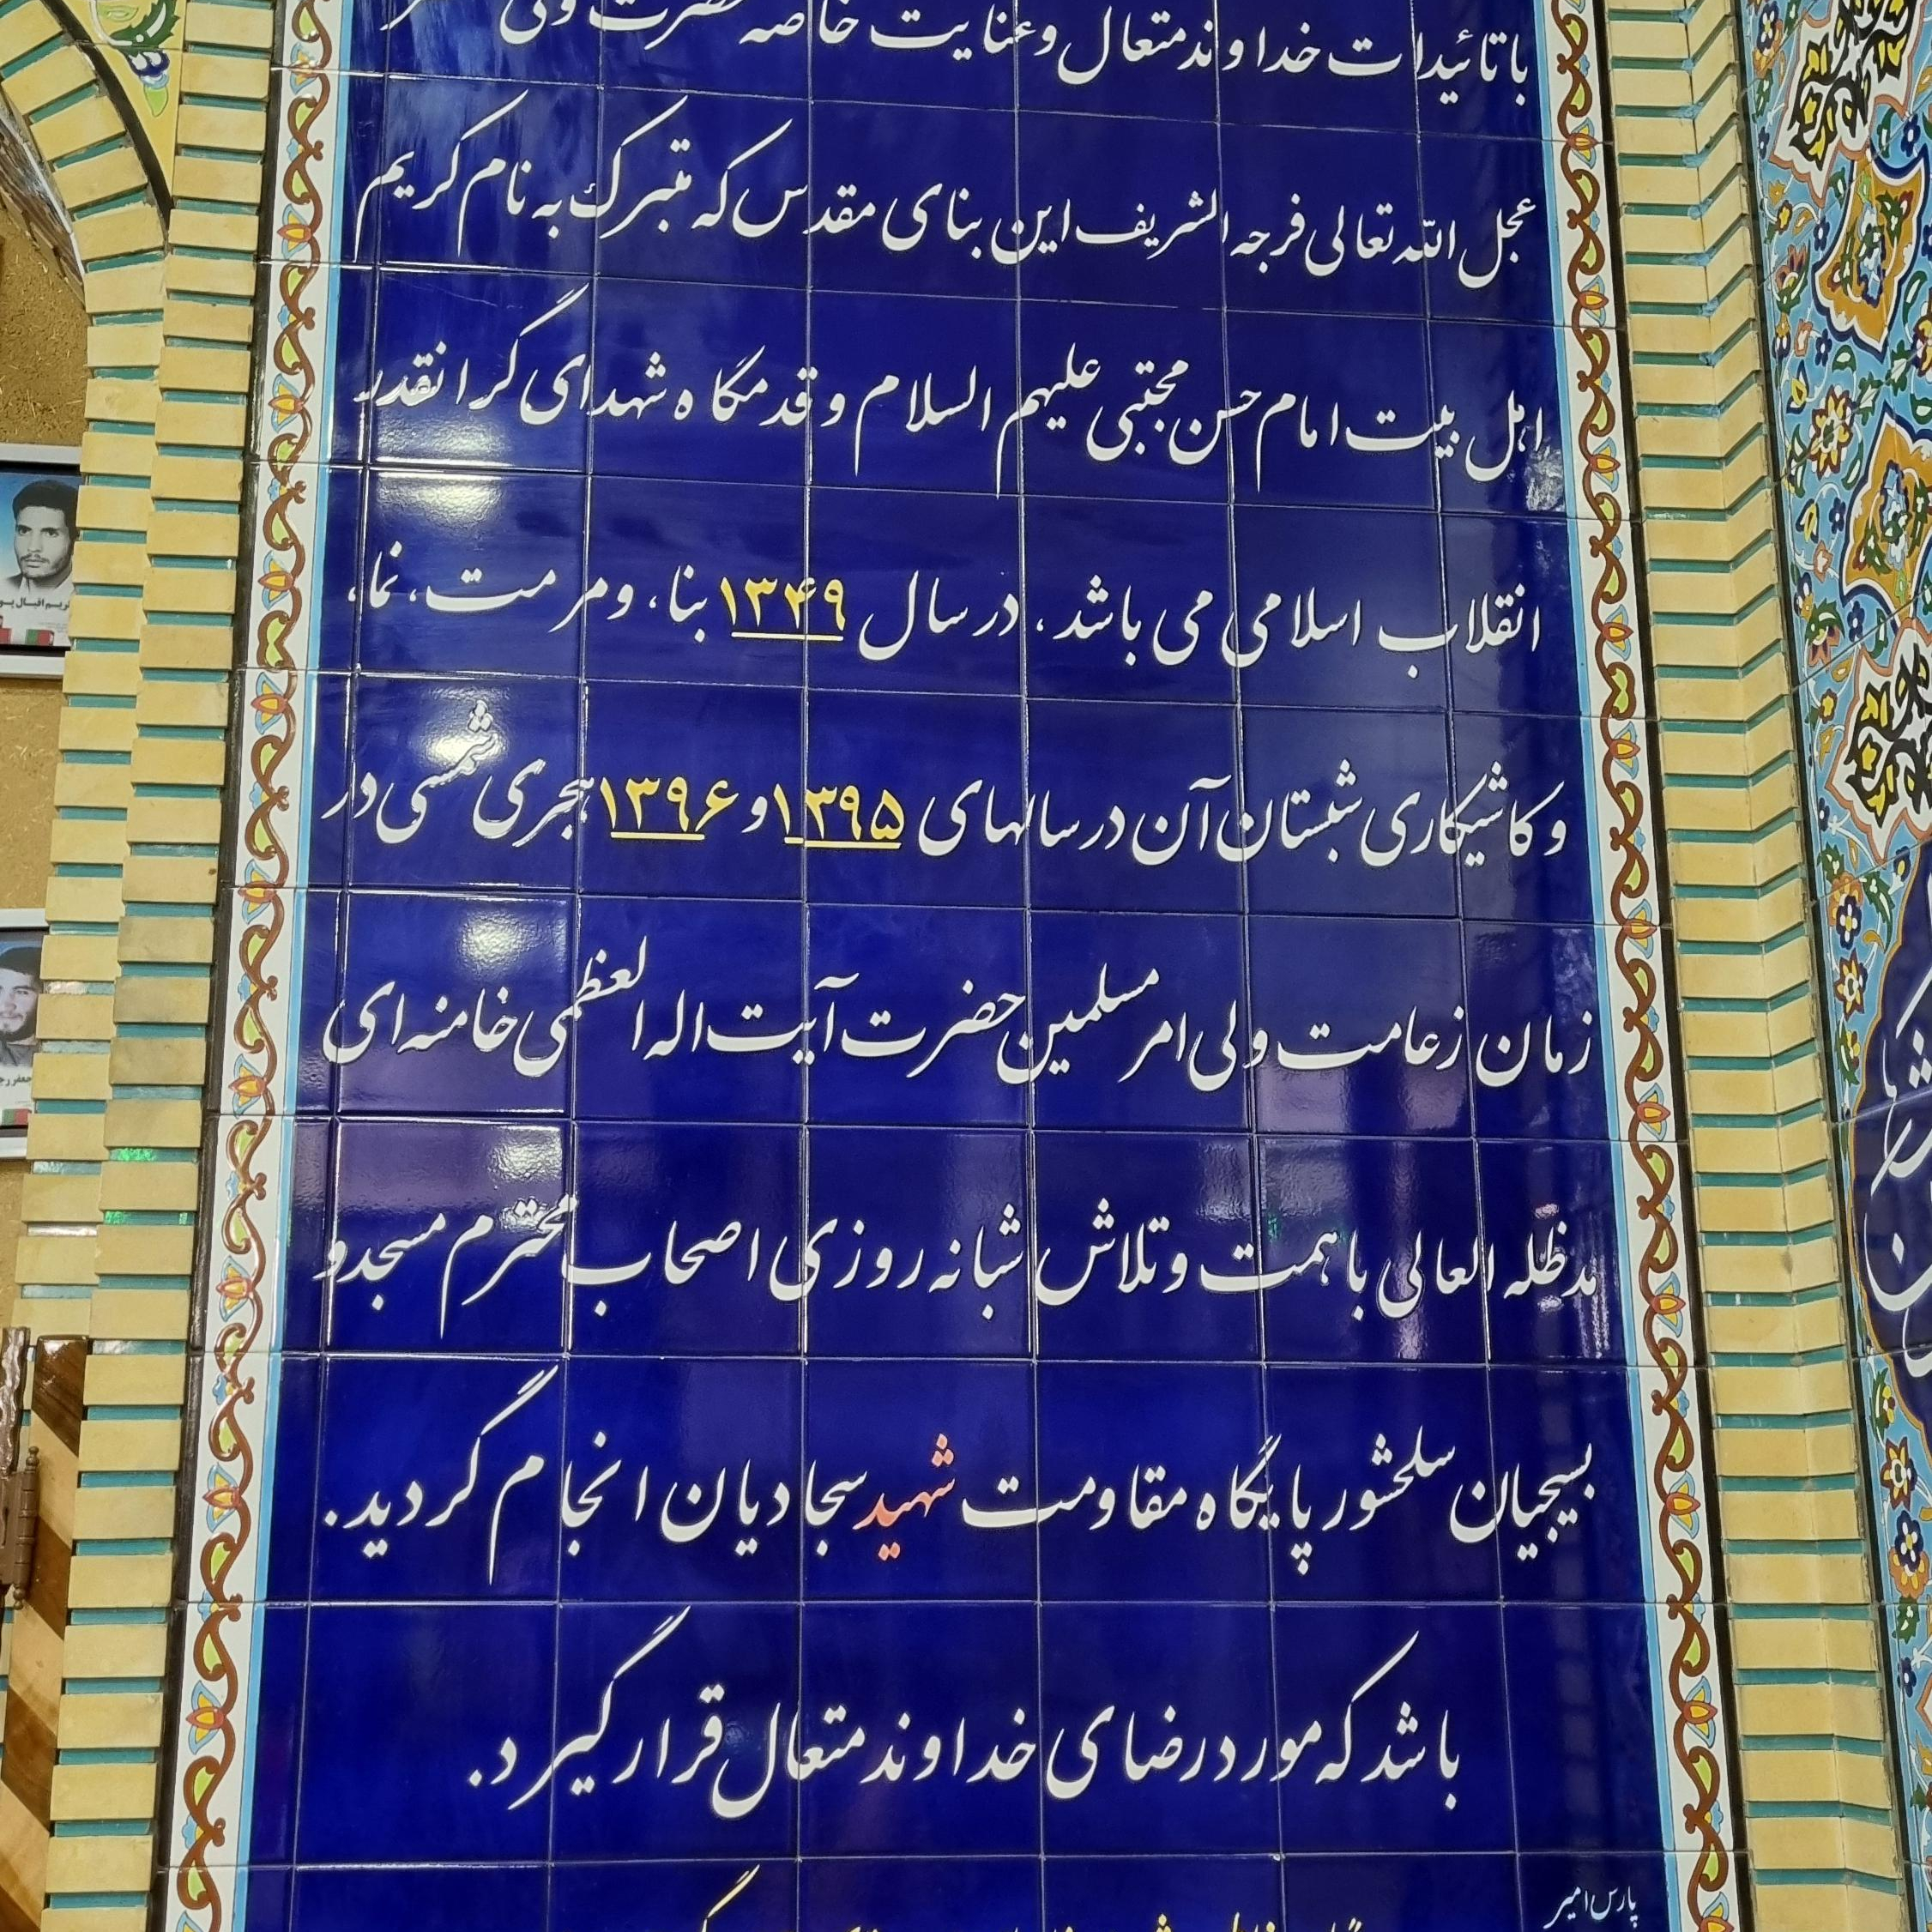 با تائیدات خداوند متعال و عنایت خاصه حضرت ولی
عجل الله تعالی فرجه الشریف این بنای مقدس که متبرک به نام کریم
اهل بیت امام حسن مجتبی علیهم السلام و قدمگاه شهدای گرانقدر
انقلاب اسلامی می باشد، در سال ۱۳۴۹ بنا، و مرمت، نما،
و کاشیکاری شبستان آن در سالهای ۱۳۹۵ و ۱۳۹۶ هجری شمسی در
زمان زعامت ولی امر مسلمین حضرت آیت اله العظمی خامنه ای
مدظله العالی با همت و تلاش شبانه روزی اصحاب محترم مسجد و
بسیجیان سلحشور پایگاه مقاومت شهید سجادیان انجام گردید.
باشد که مورد رضای خداوند متعال قرار گیرد.
پارس امیر
کریم اقبال پو
جعفر رج